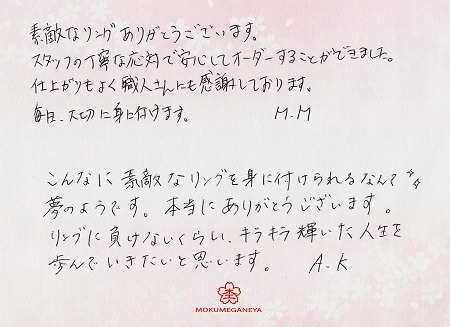 素敵なリングありがとうございます。
スタッフの丁寧な応対で安心してオーダーすることができました。
仕上がりもよく職人さんにも感謝しております。
毎日、大切に身に付けます。 M.M
こんなに素敵なリングを身に付けられるなんて
夢のようです。本当にありがとうございます。
リングに負けないくらい、キラキラ輝いた人生を
歩んでいきたいと思います。 A.K
MOKUMEGANEYA